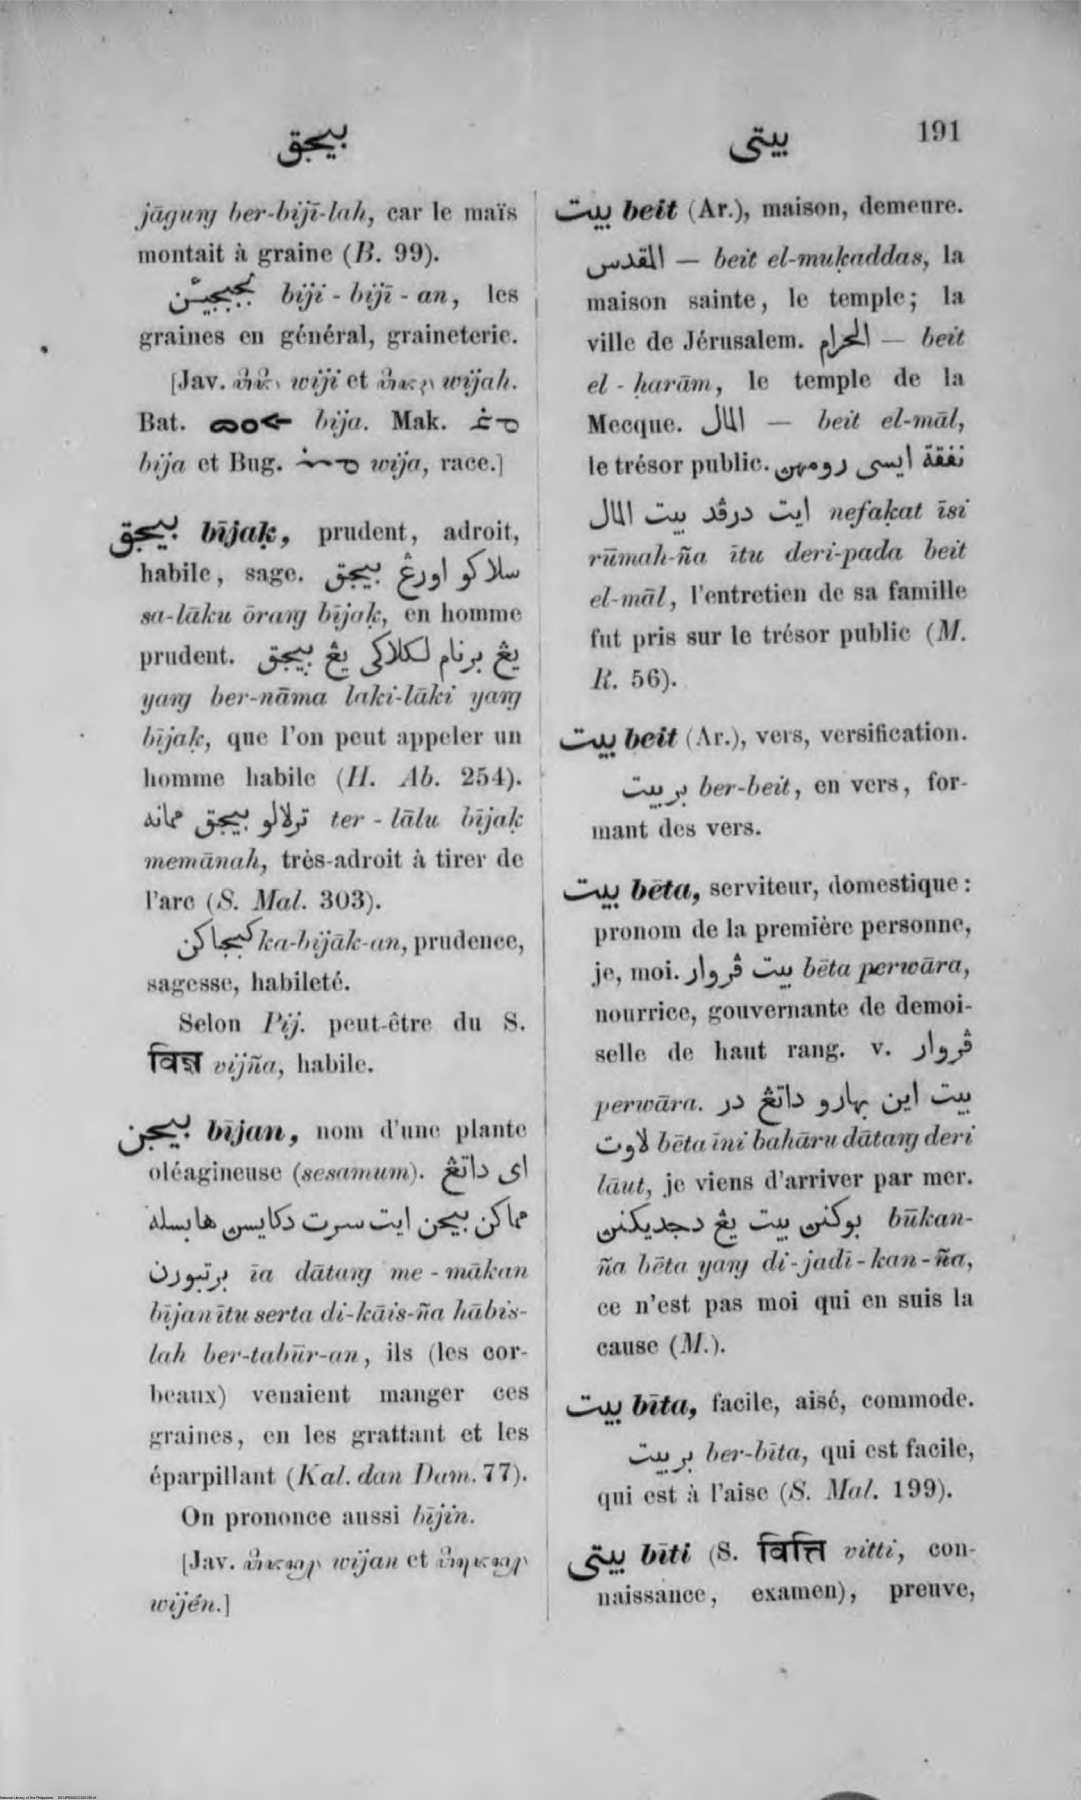 بيجق
بيتي
191
jāguṇg ber-bijī-lah, car le maïs
montait à graine (B. 99).
biji - bijī - an, les
graines en général, graineterie.
[Jav. wiji et wijah.
Bat. bija. Mak.
bija et Bug. wija, race.]
بيجق bījaḳ, prudent, adroit,
habile, sage. سلاكو اورڠ بيجق
sa-lāku ōrang bījaḳ, en homme
prudent. يڠ برنام لكلاكي يڠ بيجق
yang ber-nāma laki-lāki yang
bījaḳ, que l'on peut appeler un
homme habile (H. Ab. 254).
ترلالو بيجق ممانه ter - lālu bījaḳ
memānah, très-adroit à tirer de
l'arc (S. Mal. 303).
كبيجاكن ka-bijāk-an, prudence,
sagesse, habileté.
Selon Pij. peut-être du S.
विज्ञ vijña, habile.
بيجن bījan, nom d'une plante
oléagineuse (sesamum). اي داتڠ
مماكن بيجن ايت سرت دكايسن هابسله
برتبورن īa dātang me - mākan
bījan ītu serta di-kāis-ña hābis-
lah ber-tabūr-an, ils (les cor-
beaux) venaient manger ces
graines, en les grattant et les
éparpillant (Kal. dan Dam. 77).
On prononce aussi bījin.
[Jav. wijan et
wijén.]
بيت beit (Ar.), maison, demeure.
المقدس — beit el-muḳaddas, la
maison sainte, le temple; la
ville de Jérusalem. الحرام — beit
el - ḥarām, le temple de la
Mecque. المال — beit el-māl,
le trésor public. نفقة ايسي رومهن
ايت درڤد بيت المال nefaḳat īsi
rūmah-ña ītu deri-pada beit
el-māl, l'entretien de sa famille
fut pris sur le trésor public (M.
R. 56).
بيت beit (Ar.), vers, versification.
بربيت ber-beit, en vers, for-
mant des vers.
بيت bēta, serviteur, domestique:
pronom de la première personne,
je, moi. بيت ڤروار bēta perwāra,
nourrice, gouvernante de demoi-
selle de haut rang. v. ڤروار
perwāra. بيت اين بهارو داتڠ در
لاوت bēta īni bahāru dātang deri
lāut, je viens d'arriver par mer.
بوكنن بيت يڠ دجديكنن būkan-
ña bēta yang di-jadī-kan-ña,
ce n'est pas moi qui en suis la
cause (M.).
بيت bīta, facile, aisé, commode.
بربيت ber-bīta, qui est facile,
qui est à l'aise (S. Mal. 199).
بيتي bīti (S. वित्ति vitti, con-
naissance, examen), preuve,